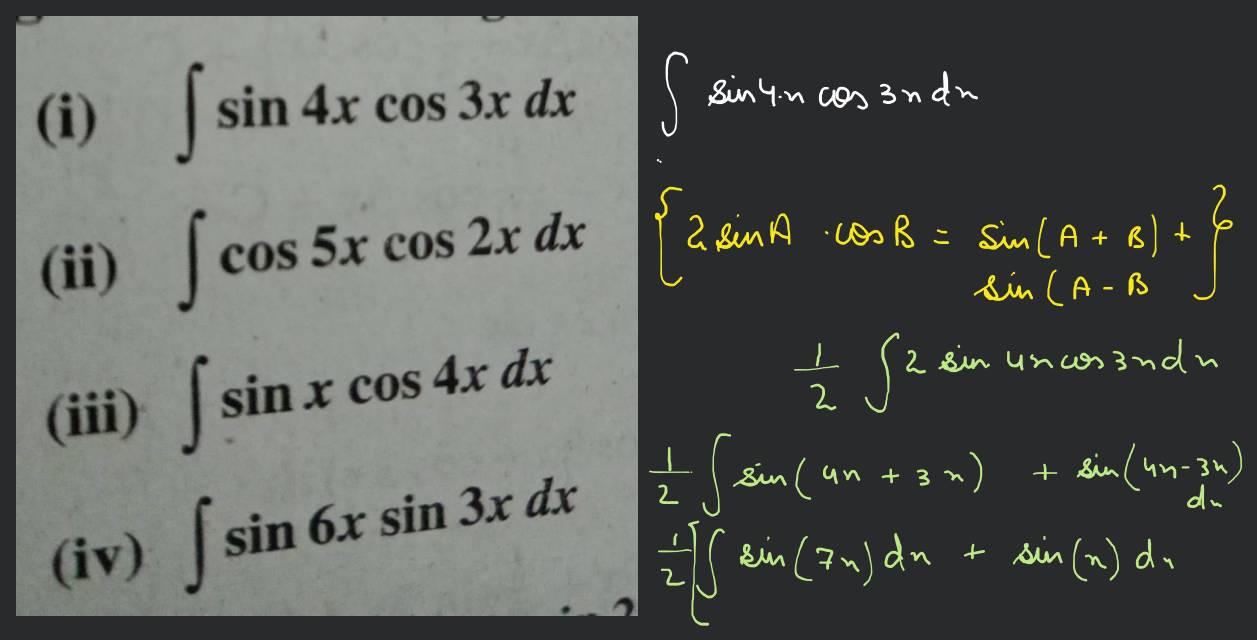 (i) ∫ sin 4x cos 3x dx
(ii) ∫ cos 5x cos 2x dx
(iii) ∫ sin x cos 4x dx
(iv) ∫ sin 6x sin 3x dx
∫ sin 4x cos 3x dx
{ 2 sin A · cos B = sin(A + B) + }
sin(A - B
1/2 ∫ 2 sin 4x cos 3x dx
1/2 ∫ sin(4x + 3x) + sin(4x-3x)
dx
1/2 [∫ sin(7x) dx + sin(x) dx